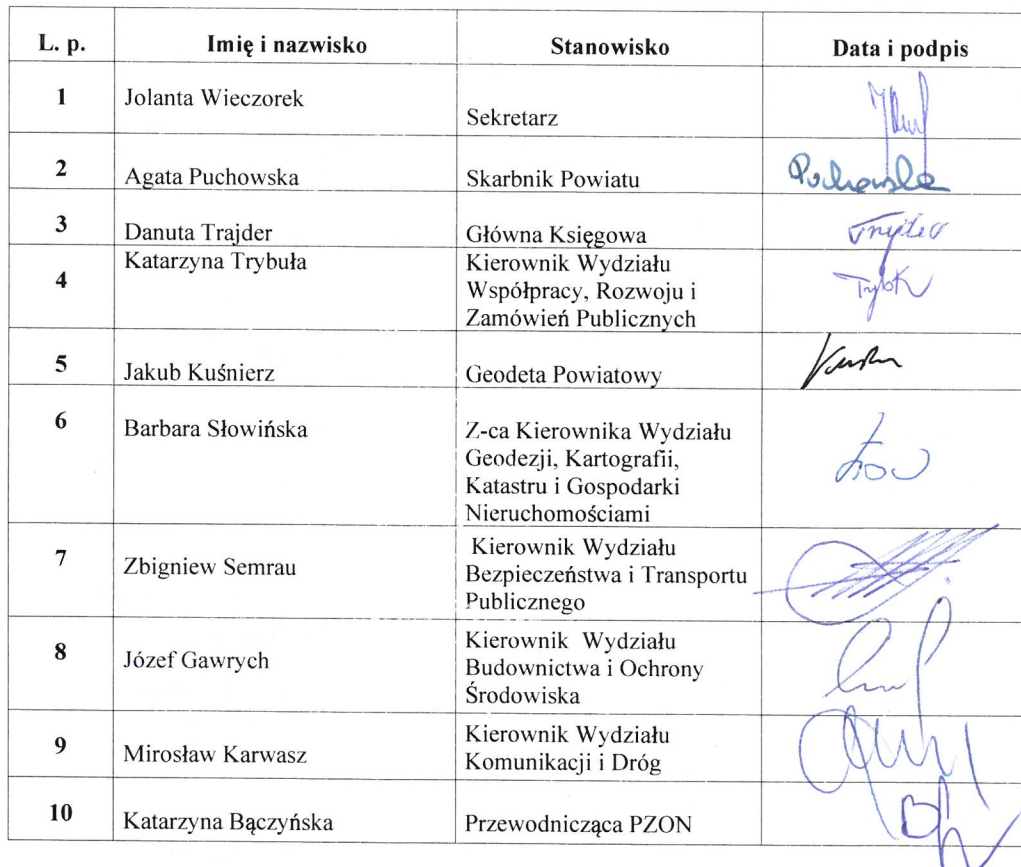 L. p. Imię i nazwisko Stanowisko Data i podpis
1 Jolanta Wieczorek Sekretarz
2 Agata Puchowska Skarbnik Powiatu Puchowska
3 Danuta Trajder Główna Księgowa
4 Katarzyna Trybuła Kierownik Wydziału
Współpracy, Rozwoju i
Zamówień Publicznych
5 Jakub Kuśnierz Geodeta Powiatowy
6 Barbara Słowińska Z-ca Kierownika Wydziału
Geodezji, Kartografii,
Katastru i Gospodarki
Nieruchomościami
7 Zbigniew Semrau Kierownik Wydziału
Bezpieczeństwa i Transportu
Publicznego
8 Józef Gawrych Kierownik Wydziału
Budownictwa i Ochrony
Środowiska
9 Mirosław Karwasz Kierownik Wydziału
Komunikacji i Dróg
10 Katarzyna Bączyńska Przewodnicząca PZON